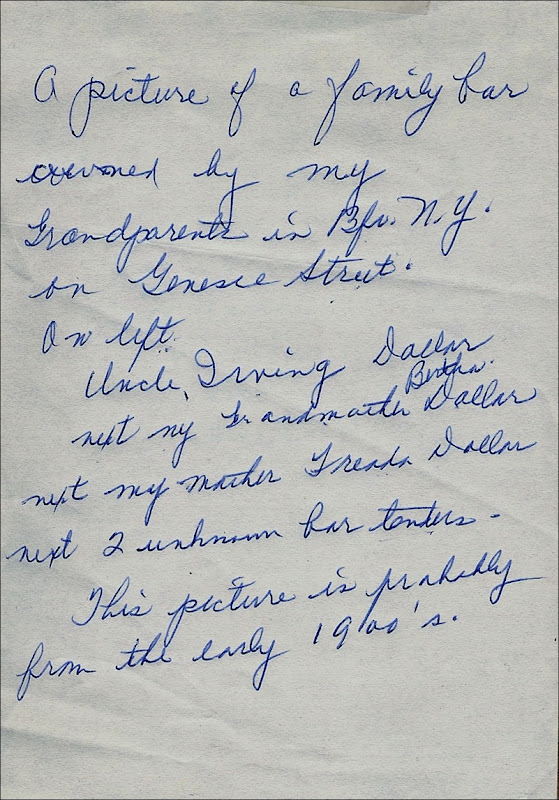 A picture of a family bar
owened by my
Grandparents in Bfo. N.Y.
on Genesee Street.
On left
Uncle, Irving Dollar
next my Grandmother Bertha Dollar
next my mother Freada Dollar
next 2 unknown bar tenders -
This picture is probably
from the early 1900's.